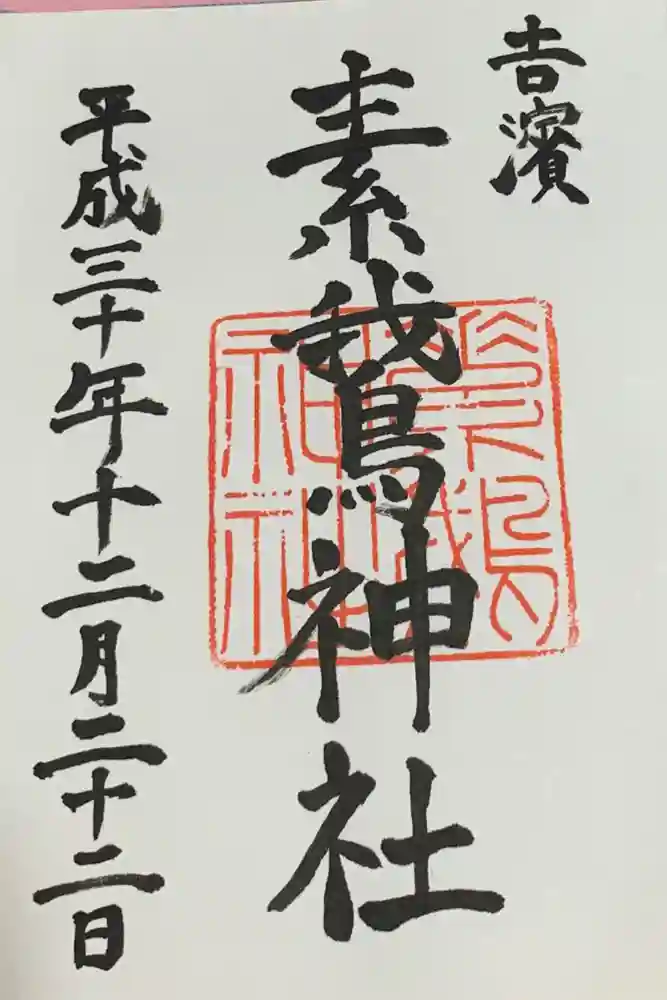 吉濱
素鵞神社
平成三十年十二月二十二日